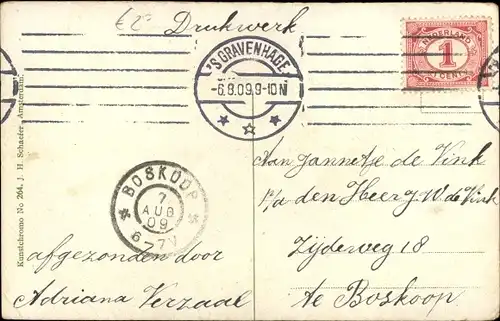 €2- Drukwerk
NEDERLAND
1
1 CENT
'S GRAVENHAGE
-6.8.09.9-10N
Kunstchromo No 264. J. H. Schaefer, Amsterdam.
BOSKOOP
7
AUG
09
6-7V
Aan Jannetje de Vink
P/a den Heer J. W de Vink
Zijdeweg 18
te Boskoop
afgezonden door
Adriana Verzaal